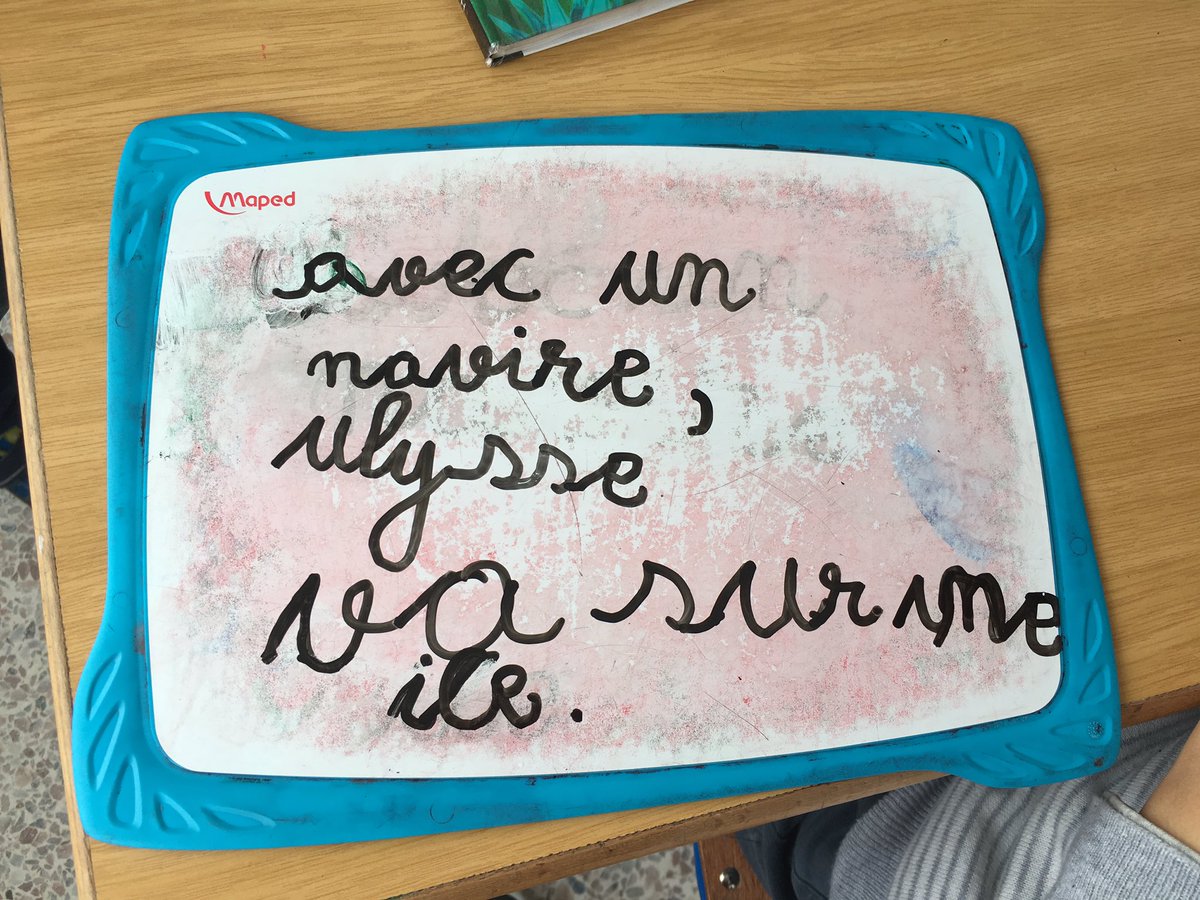 Maped
avec un
navire,
ulysse
va sur une
ile.